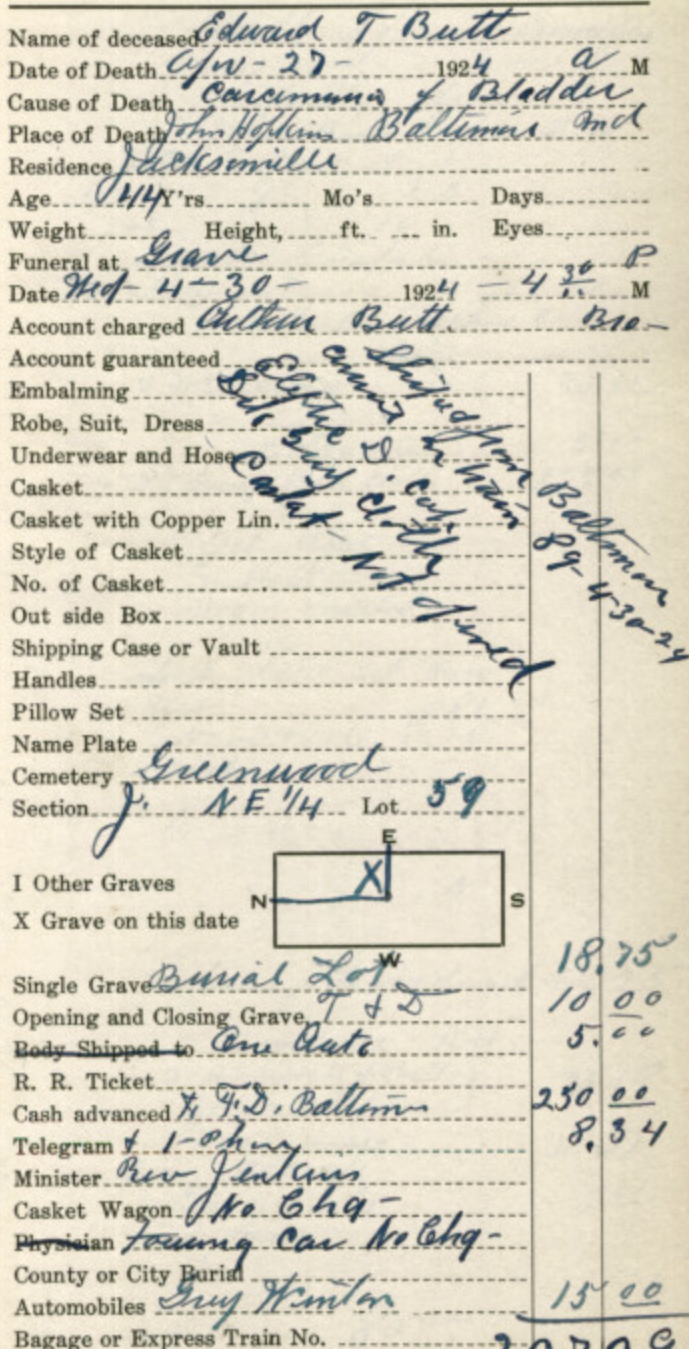 Name of deceased Edward T Butt
Date of Death Apr - 27 - 1924 a M
Cause of Death Carcinoma of Bladder
Place of Death John Hopkins Baltimore Md
Residence Jacksonville
Age 44 Y'rs Mo's Days
Weight Height, ft. in. Eyes
Funeral at Grave
Date Wed - 4 - 30 - 1924 - 4 30 P M
Account charged Arthur Butt. Bro -
Account guaranteed
Embalming
Robe, Suit, Dress
Underwear and Hose
Casket
Casket with Copper Lin.
Style of Casket
No. of Casket
Out side Box
Shipping Case or Vault
Handles
Pillow Set
Name Plate
Shipped from Baltimore
on train 89 - 4-30-24
D
Cloth
Casket - Not opened
Cemetery Greenwood
Section J. NE 1/4 Lot 59
E
I Other Graves
N S
X
X Grave on this date
W
Single Grave Burial Lot 18.75
Opening and Closing Grave, T & D 10 00
Body Shipped to One Auto 5.00
R. R. Ticket
Cash advanced F. D. Baltimore 250 00
Telegram & 1 - Phone 8.34
Minister Rev Jenkins
Casket Wagon No Chg -
Physician Touring Car No Chg -
County or City Burial
Automobiles Grey Winton 15 00
Bagage or Express Train No.